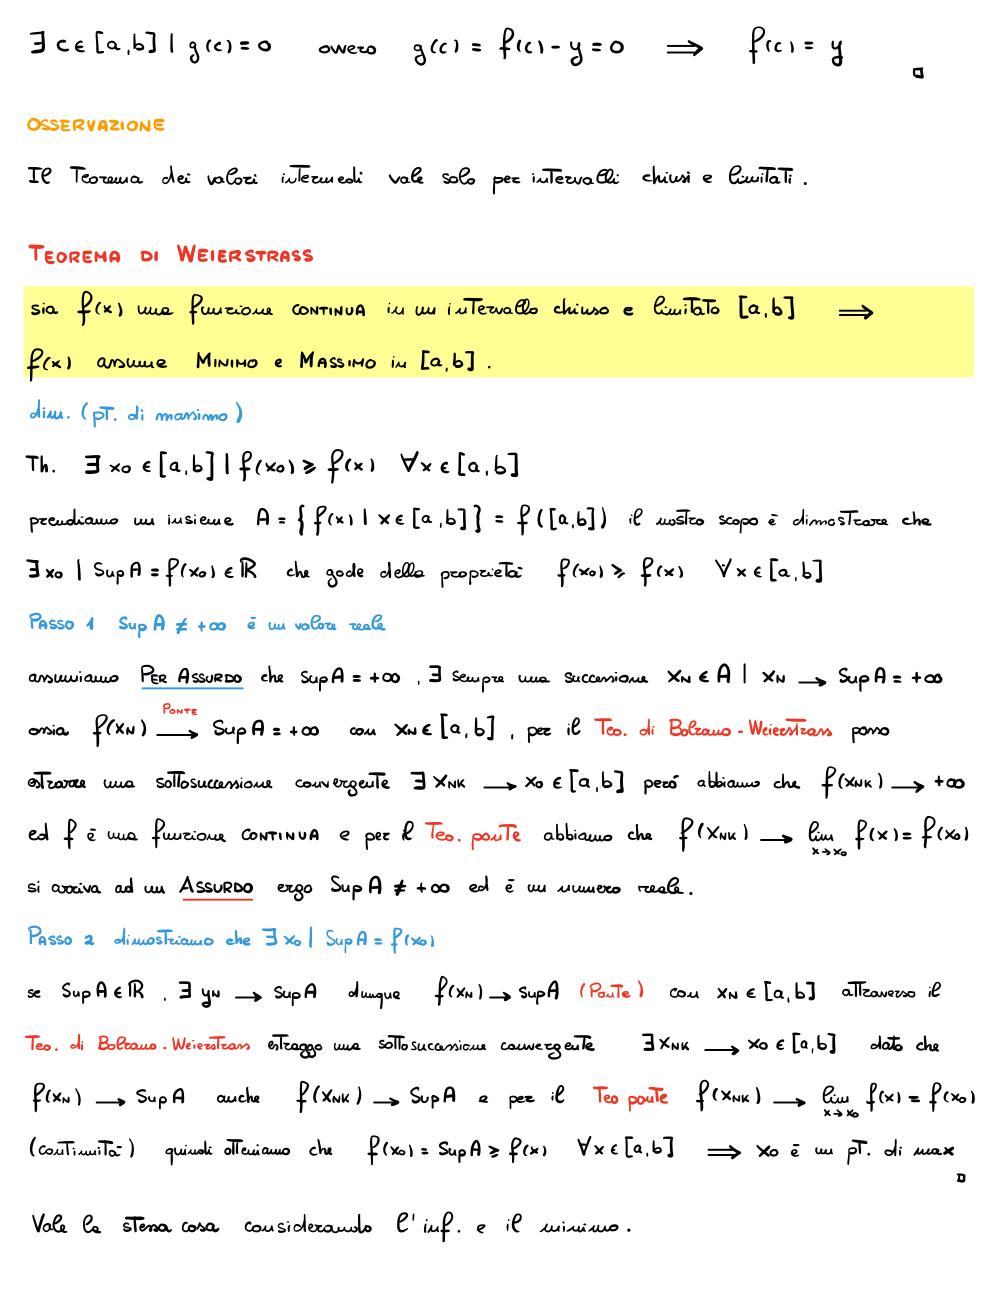 ∃ c ∈ [a,b] | g(c) = 0 ovvero g(c) = f(c) - y = 0 ⟹ f(c) = y □
OSSERVAZIONE
Il Teorema dei valori intermedi vale solo per intervalli chiusi e limitati.
TEOREMA DI WEIERSTRASS
sia f(x) una funzione CONTINUA in un intervallo chiuso e limitato [a,b] ⟹
f(x) assume MINIMO e MASSIMO in [a,b].
dim. (pt. di massimo)
Th. ∃ x₀ ∈ [a,b] | f(x₀) ⩾ f(x) ∀x ∈ [a,b]
prendiamo un insieme A = { f(x) | x ∈ [a,b] } = f([a,b]) il nostro scopo è dimostrare che
∃ x₀ | Sup A = f(x₀) ∈ ℝ che gode della proprietà f(x₀) ⩾ f(x) ∀x ∈ [a,b]
PASSO 1 Sup A ≠ +∞ è un valore reale
assumiamo PER ASSURDO che Sup A = +∞, ∃ sempre una successione xN ∈ A | xN → Sup A = +∞
PONTE
ossia f(xN) → Sup A = +∞ con xN ∈ [a,b], per il Teo. di Bolzano - Weierstrass posso
estrarre una sottosuccessione convergente ∃ xNK → x₀ ∈ [a,b] però abbiamo che f(xNK) → +∞
ed f è una funzione CONTINUA e per il Teo. ponte abbiamo che f(xNK) → lim x→x₀ f(x) = f(x₀)
si arriva ad un ASSURDO ergo Sup A ≠ +∞ ed è un numero reale.
PASSO 2 dimostriamo che ∃ x₀ | Sup A = f(x₀)
se Sup A ∈ ℝ, ∃ yN → Sup A dunque f(xN) → Sup A (Ponte) con xN ∈ [a,b] attraverso il
Teo. di Bolzano - Weierstrass estraggo una sottosuccessione convergente ∃ xNK → x₀ ∈ [a,b] dato che
f(xN) → Sup A anche f(xNK) → Sup A e per il Teo ponte f(xNK) → lim x→x₀ f(x) = f(x₀)
(continuità) quindi otteniamo che f(x₀) = Sup A ⩾ f(x) ∀x ∈ [a,b] ⟹ x₀ è un pt. di max □
Vale la stessa cosa considerando l'inf. e il minimo.